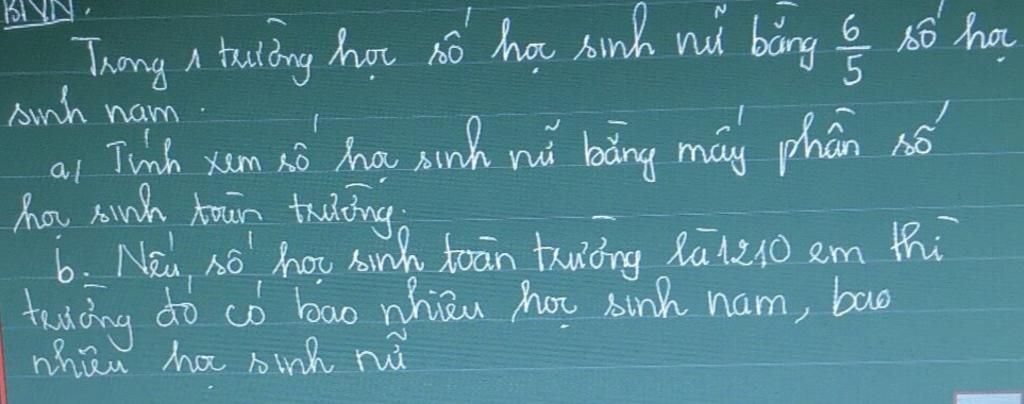 BTVN.
Trong 1 trường học số học sinh nữ bằng 6/5 số học
sinh nam.
a, Tính xem số học sinh nữ bằng mấy phần số
học sinh toàn trường.
b. Nếu số học sinh toàn trường là 1210 em thì
trường đó có bao nhiêu học sinh nam, bao
nhiêu học sinh nữ